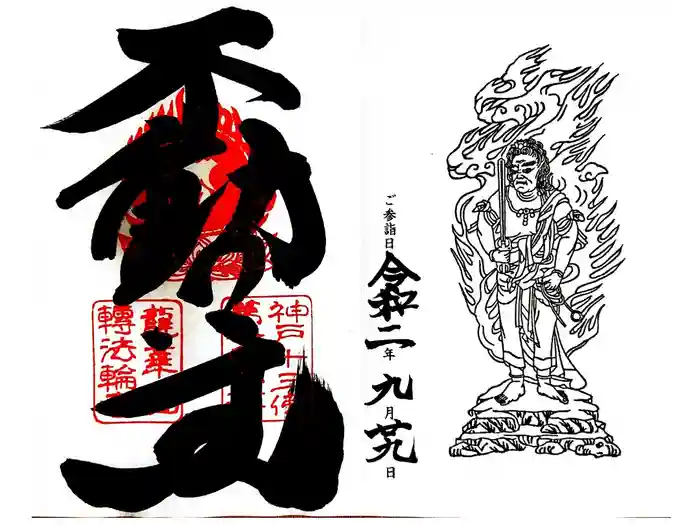 不動
神戸十三佛
龍華山
轉法輪寺
ご参詣日
令和二年
九月廿九日